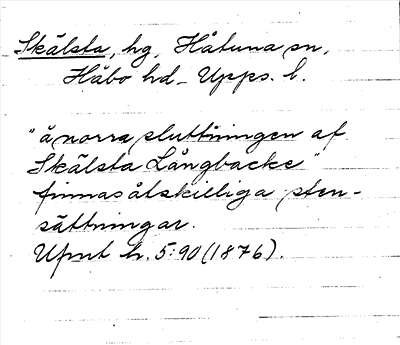 Skälsta, hg, Håtuna sn,
Håbo hd_ Upps. l.
"å norra sluttningen af
Skälsta Långbacke"
finnas åtskilliga sten-
sättningar.
Upmt h. 5:90 (1876).